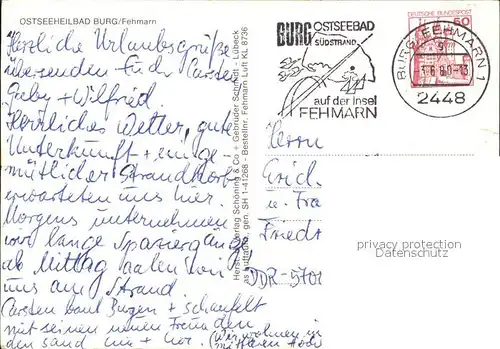 OSTSEEHEILBAD BURG/Fehmarn
Herzliche Urlaubsgrüße
übersenden Carsten
Gaby + Wilfried.
Herzliches Wetter, gute
Unterkunft + ein ge-
mütlicher Strandkorb
erwarteten uns hier.
Morgens unternehmen
wir lange Spaziergänge
ab Mittag aalen wir
uns am Strand.
Carsten baut Burgen + schaufelt
mit seinen neuen Freunden
den Sand hin + her. (Wir wohnen im
mittleren
Schöning & Co + Gebrüder Schmidt - Lübeck
gen. SH 1-41268 - Bestellnr. Fehmarn Luft KL 8736
BURG OSTSEEBAD
SÜDSTRAND
auf der Insel
FEHMARN
DEUTSCHE BUNDESPOST
60
BURG, FEHMARN 1
2448
Herrn
Erich
u. Frau
Friedr
DDR-5701
privacy protection
Datenschutz